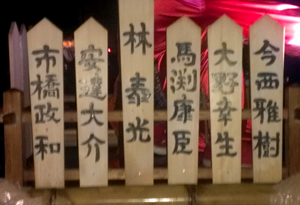 今西雅樹
大野幸生
馬渕康臣
林泰光
安達大介
市橋政和